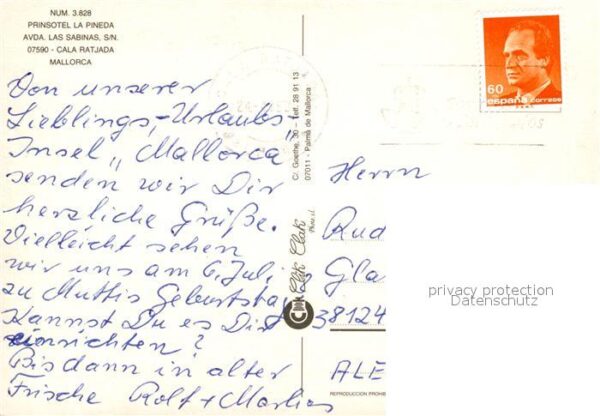 NUM. 3.828
PRINSOTEL LA PINEDA
AVDA. LAS SABINAS, S/N.
07590 - CALA RATJADA
MALLORCA
Von unserer
Lieblings-Urlaubs-
Insel „Mallorca
senden wir Dir
herzliche Grüße.
Vielleicht sehen
wir uns am 6. Juli
zu Muttis Geburtstag
Kannst Du es Dir
einrichten?
Bis dann in alter
Frische Rolf + Marlies
C/. Goethe, 30 - Telf. 28 91 13
07011 - Palma de Mallorca
Clik Clak
60
españa correos
Herrn
Rud
Gla
38124
ALE
privacy protection
Datenschutz
REPRODUCCION PROHIB